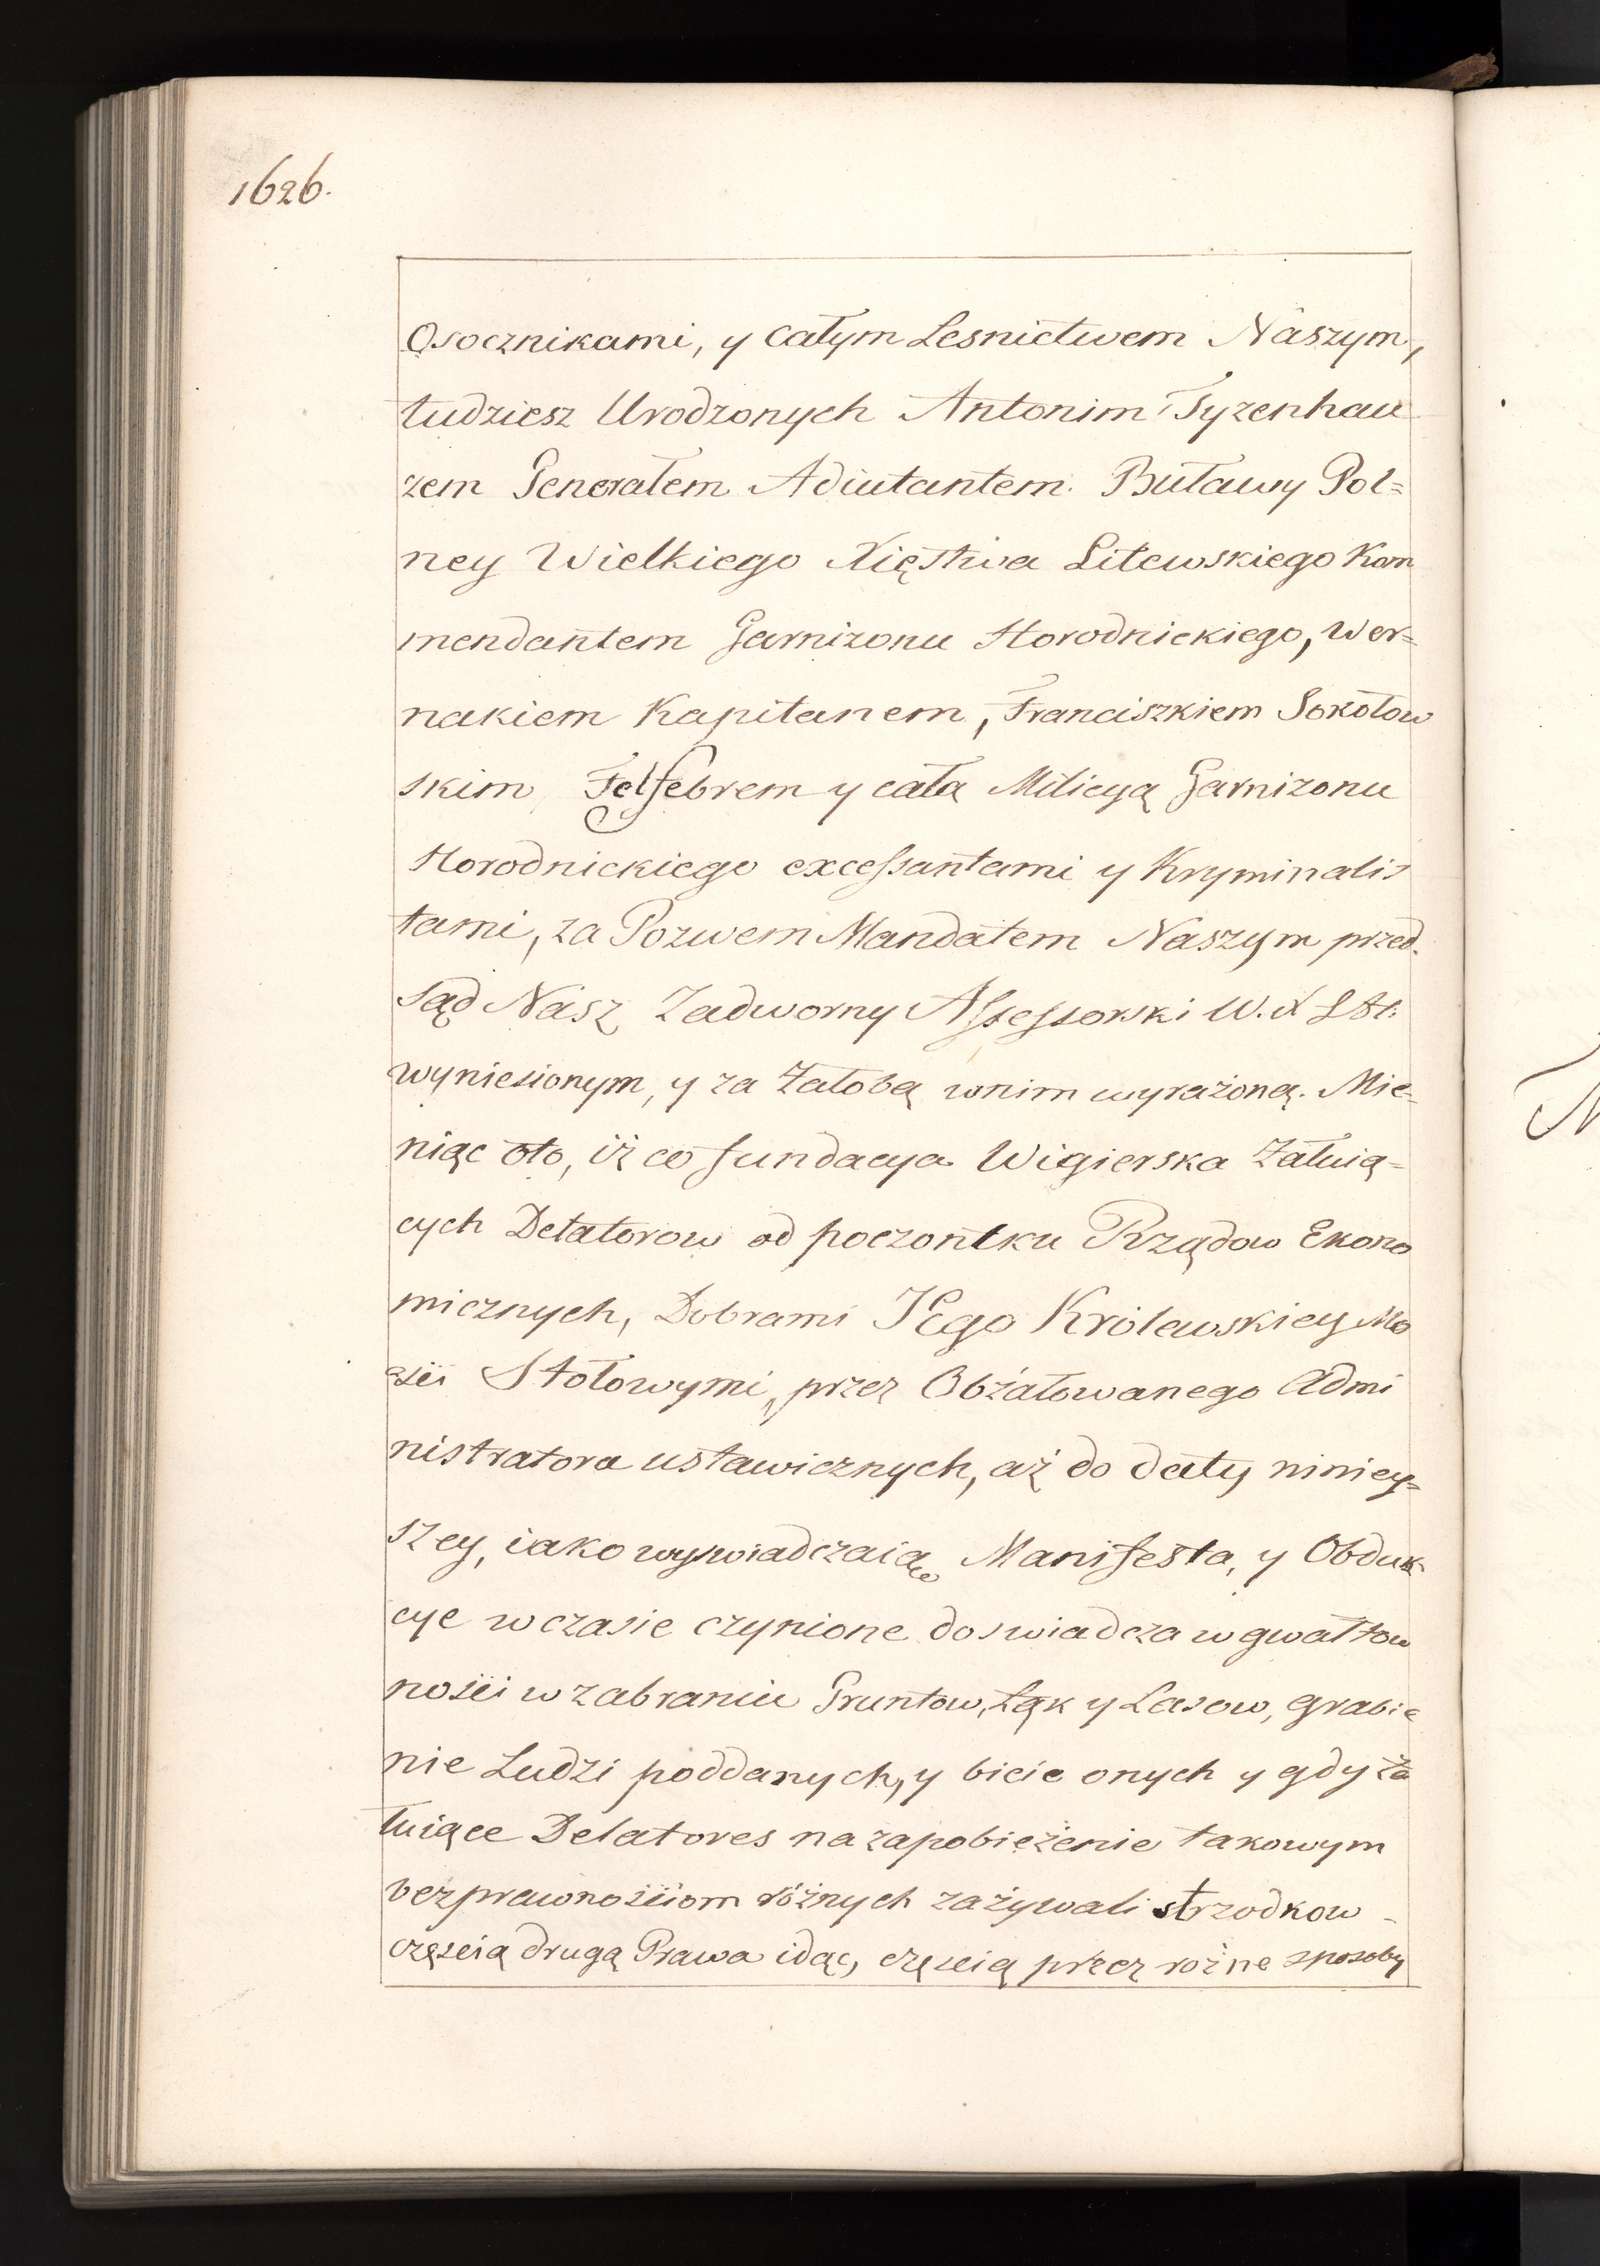 1626.
Osocznikami, y całym Lesnictwem Naszym,
tudziesz Urodzonych Antonim Tyzenhau
zem Generałem Adiutantem Buławy Pol=
ney Wielkiego Xięstwa Litewskiego Kom
mendantem Garnizonu Horodnickiego, Wer=
nakiem Kapitanem, Franciszkiem Sokołow
skim Felfebrem y całą Milicyą Garnizonu
Horodnickiego excessantami y Kryminalis
tami, za Pozwem Mandatem Naszym przed
Sąd Nasz Zadworny Assessorski W. X Litt:
wyniesionym, y za Załobą wnim wyrażoną. Mie=
niąc oto, iż co fundacya Wigierska Załuią=
cych Delatorow od poczontku Rządow Ekono
micznych, Dobrami JEgo Królewskiey Mo
sci Stołowymi, przez Obżałowanego Admi
nistratora ustawicznych, aż do daty niniey=
szey, iako wyswiadczaiące Manifesta, y Obduk
cye w czasie czynione doswiadcza w gwałtow
nosci w zabraniu Gruntow, Łąk y Lasow, grabie
nie Ludzi poddanych, y bicie onych y gdy ża
łuiące Delatores na zapobieżenie takowym
bezprawnosciom różnych zażywali strzodkow
częscią drugą Prawa idąc, częscią przez rożne sposoby